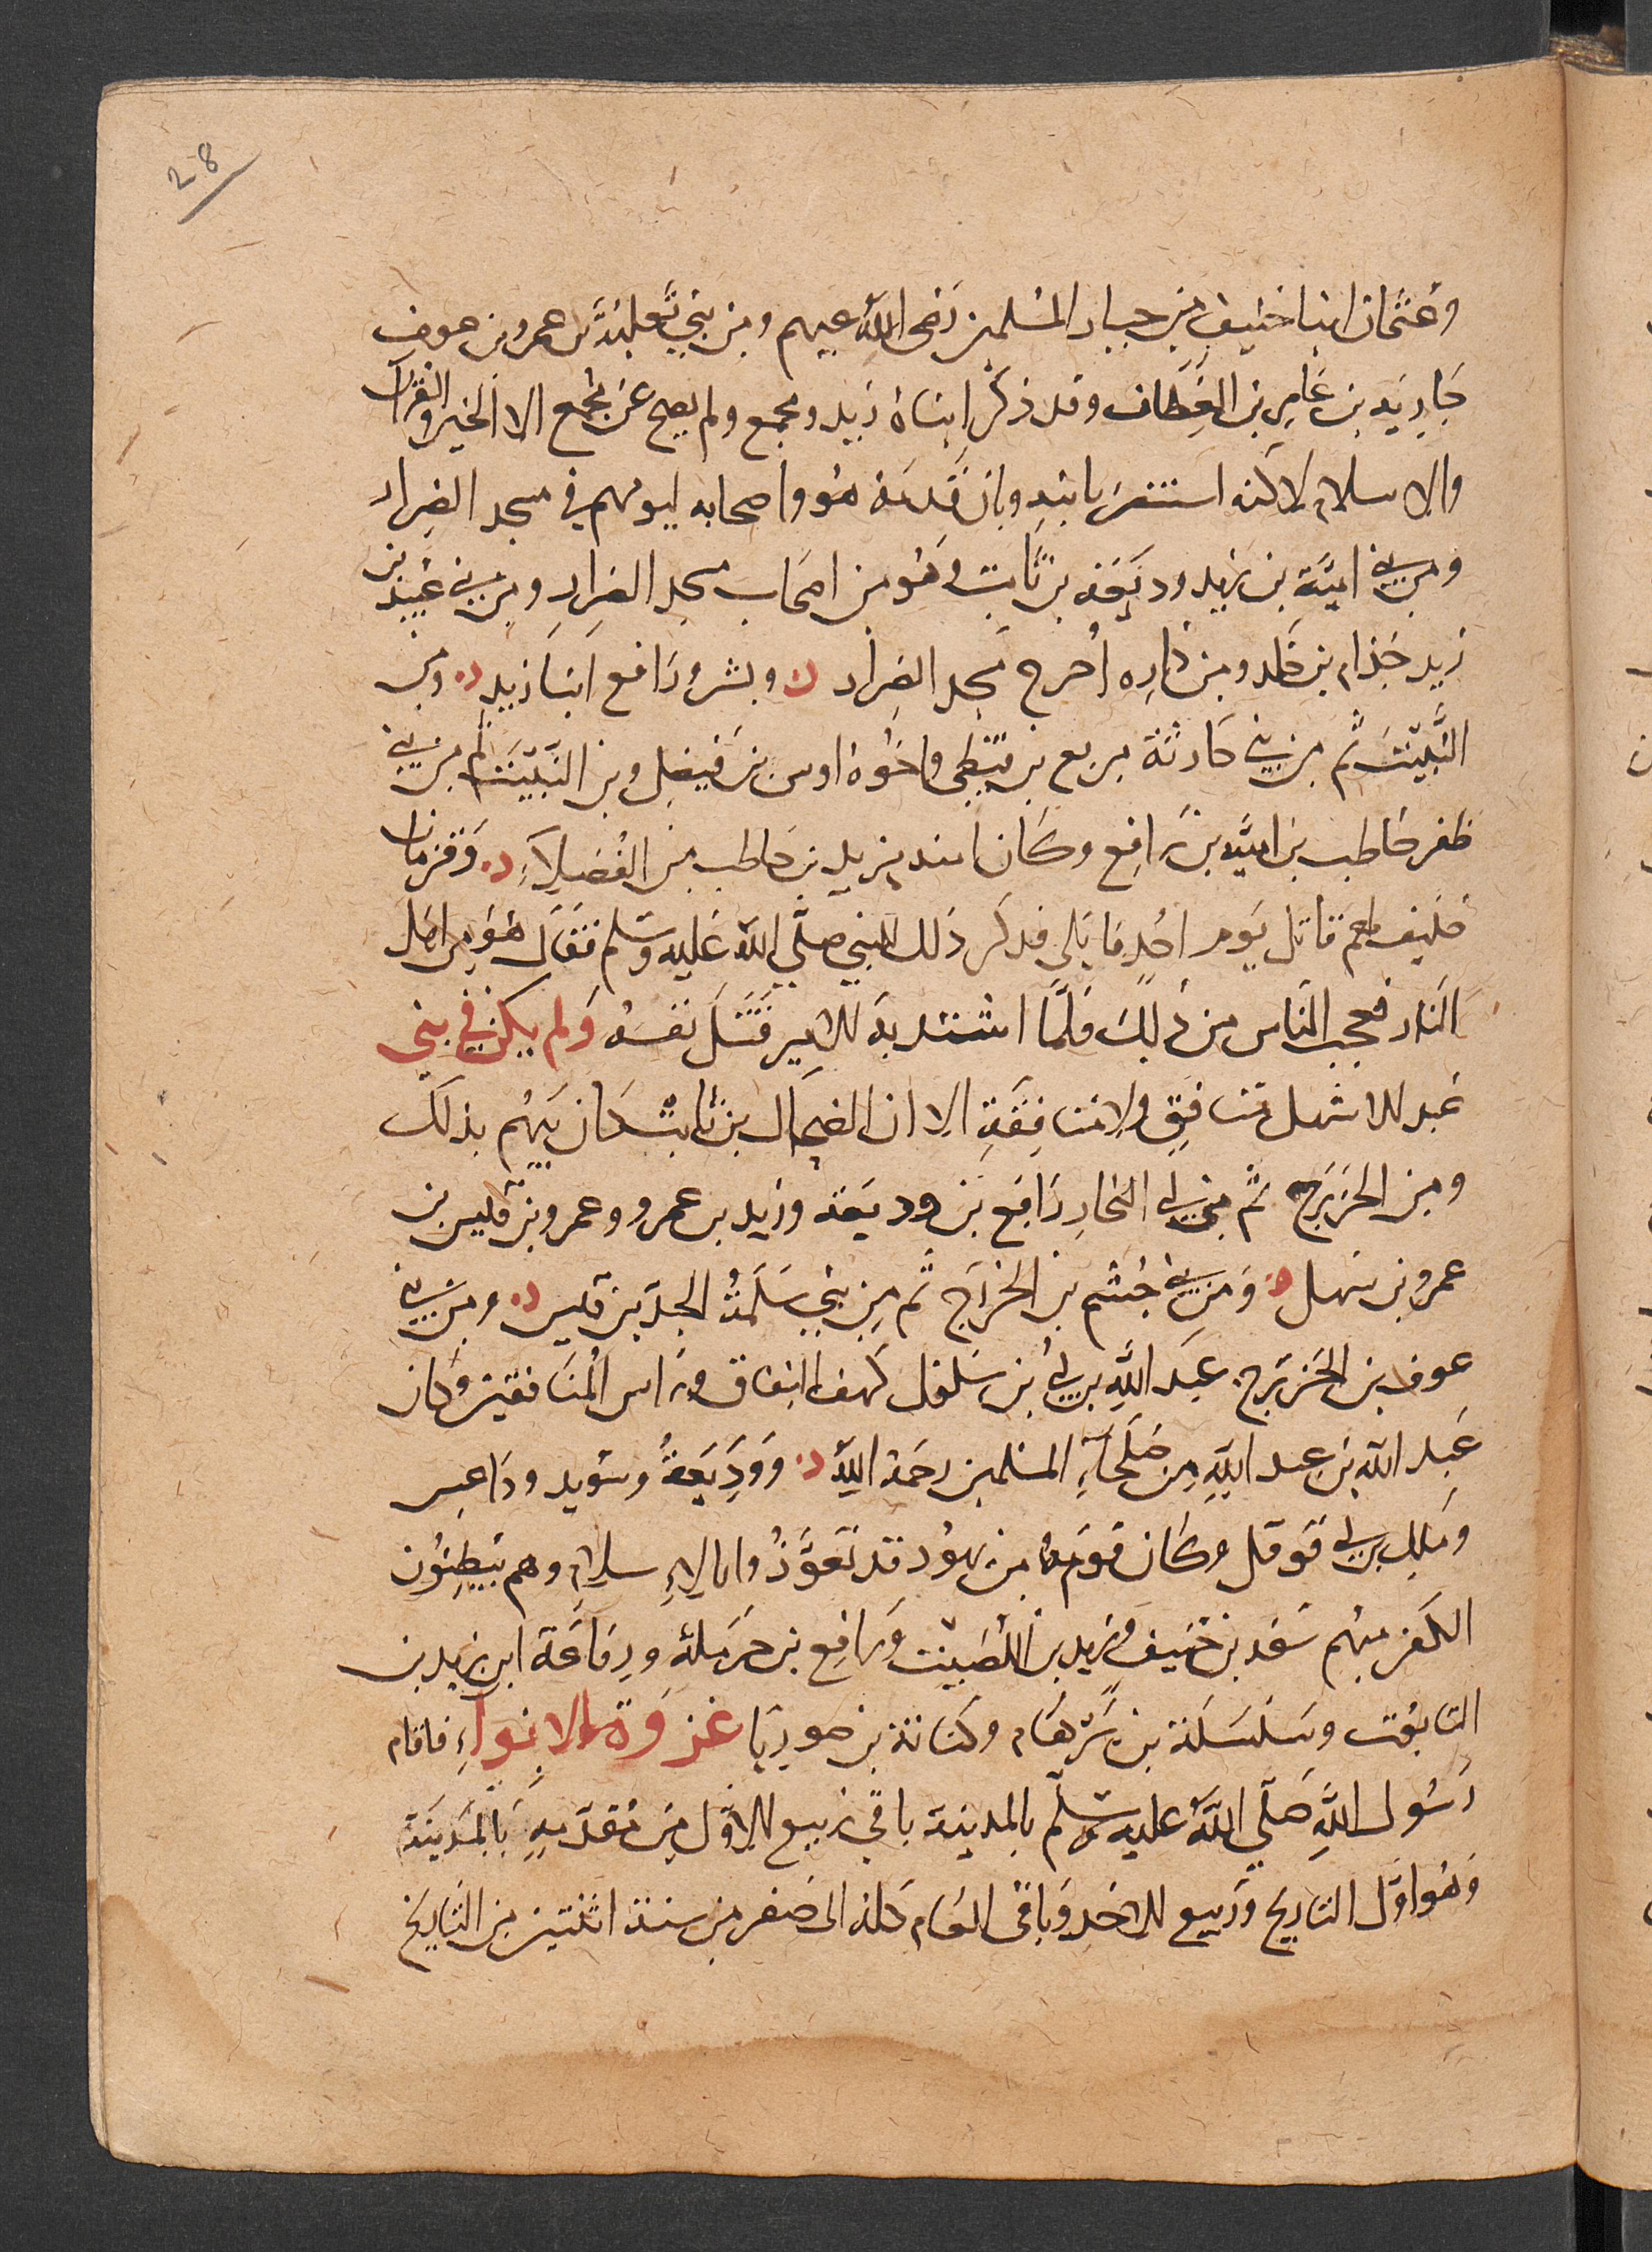 28
وعثمان ابنا حنيف من خيار المسلمين رضى الله عنهم ومن بني ثعلبة بن عمرو بن عوف
جارية بن عامر بن العطاف وقد ذكر ابناه زيد ومجمع ولم يصح عن مجمع الا الخير والقرآن
والاسلام لاكنه استتر بابنه وبان قدمه هو واصحابه ليومهم في مسجد الضرار
ومن بني امية بن زيد وديعة بن ثابت وهو من اصحاب مسجد الضرار ومن بني عبيد بن
زيد خذام بن خلد ومن داره أخرج مسجد الضرار وبشر ورافع ابنا زيد ومن
النبيت ثم من بني حارثة مربع بن قيظي واخوه اوس بن قيظي ومن النبيت ثم من بني
ظفر حاطب بن امية بن رافع وكان ابنه يزيد بن حاطب من الفضلاء وقزمان
حليف لهم قاتل يوم احد فابلى فذكر ذلك للنبي صلى الله عليه وسلم فقال هو من اهل
النار فعجب الناس من ذلك فلما اشتد به الامر قتل نفسه ولم يكن في بني
عبد الاشهل منافق ولا منافقة الا ان الضحاك بن ثابت كان يتهم بذلك
ومن الخزرج ثم من بني النجار رافع بن وديعة وزيد بن عمرو وعمرو بن قيس بن
عمرو بن سهل ومن بني جشم بن الخزرج ثم من بني سلمة الجد بن قيس ومن بني
عوف بن الخزرج عبد الله بن ابي بن سلول كهف النفاق وراس المنافقين وكان
عبد الله بن عبد الله من صلحاء المسلمين رحمة الله ووديعة وسويد وداعس
وملك بن ابي قوقل وكان قوم من يهود قد تعوذوا بالاسلام وهم يبطنون
الكفر منهم سعد بن حنيف وزيد بن اللصيت ورافع بن حرملة ورفاعة ابن زيد بن
التابوت وسلسلة بن برهام وكنانة بن صوريا غزوة الابواء فاقام
رسول الله صلى الله عليه وسلم بالمدينة باقي ربيع الاول من مقدمه بالمدينة
وهو اول التاريخ وربيع الاخر وباقى العام كله الى صفر من سنة اثنتين من التاريخ